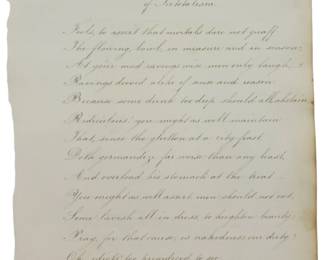 of Teetotalism.
Fools, to assert that mortals dare not quaff
The flowing bowl, in measure and in season;
At your mad ravings wise men only laugh,
Ravings devoid alike of sense and reason
Because some drink too deep should all abstain
Ridiculous! you might as well maintain
That, since the glutton at a city feast
Doth gormandize far worse than any beast,
And overload his stomach at the treat
You might as well assert men should not eat,
Some lavish all in dress, to heighten beauty;
Pray, for that cause, is nakedness our duty?
Oh, idiots! too